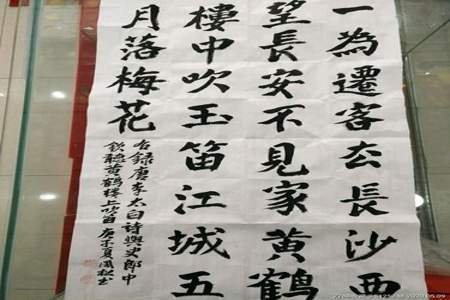 一為遷客去長沙西
望長安不見家黃鶴
樓中吹玉笛江城五
月落梅花
右錄唐李太白詩與史郎中
欽聽黃鶴樓上吹笛 庚子夏